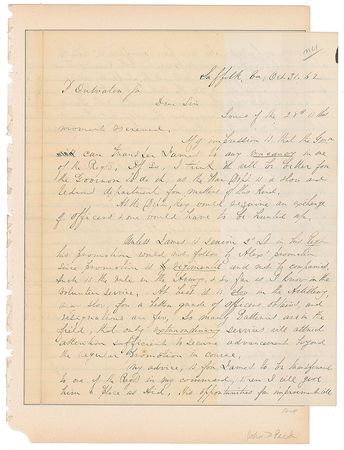 Suffolk, Va, Oct 31. 62
T Outwater Jr
Dear Sir
Yours of the 28th is this
moment received.
My impression is that the Gov
can transfer James to any vacancy in one
of the Regts, if so, I think it will be better for
the Governor to do it, as the War Dept is a slow and
tedious department for matters of this kind.
At the
of officers & one would have to be hunted up.
Unless James is senior 2d Lt in his Regt
his promotion would not follow by Alex's promotion
since promotion is regimental and not by companies.
Such is the rule in the Army, & so far as is known in the
volunteer service. At best it is slow in the Artillery,
are slow, for a better grade of officers obtains, and
resignations are few, So many Batteries are in the
field, that only extraordinary services will attract
attention sufficient to secure advancement beyond
the regular promotion in course.
My advice, is for James to be transferred
to one of the Regts in my command, & then I will give
him a place as Aid, His opportunities for improvement &c
John J Peck